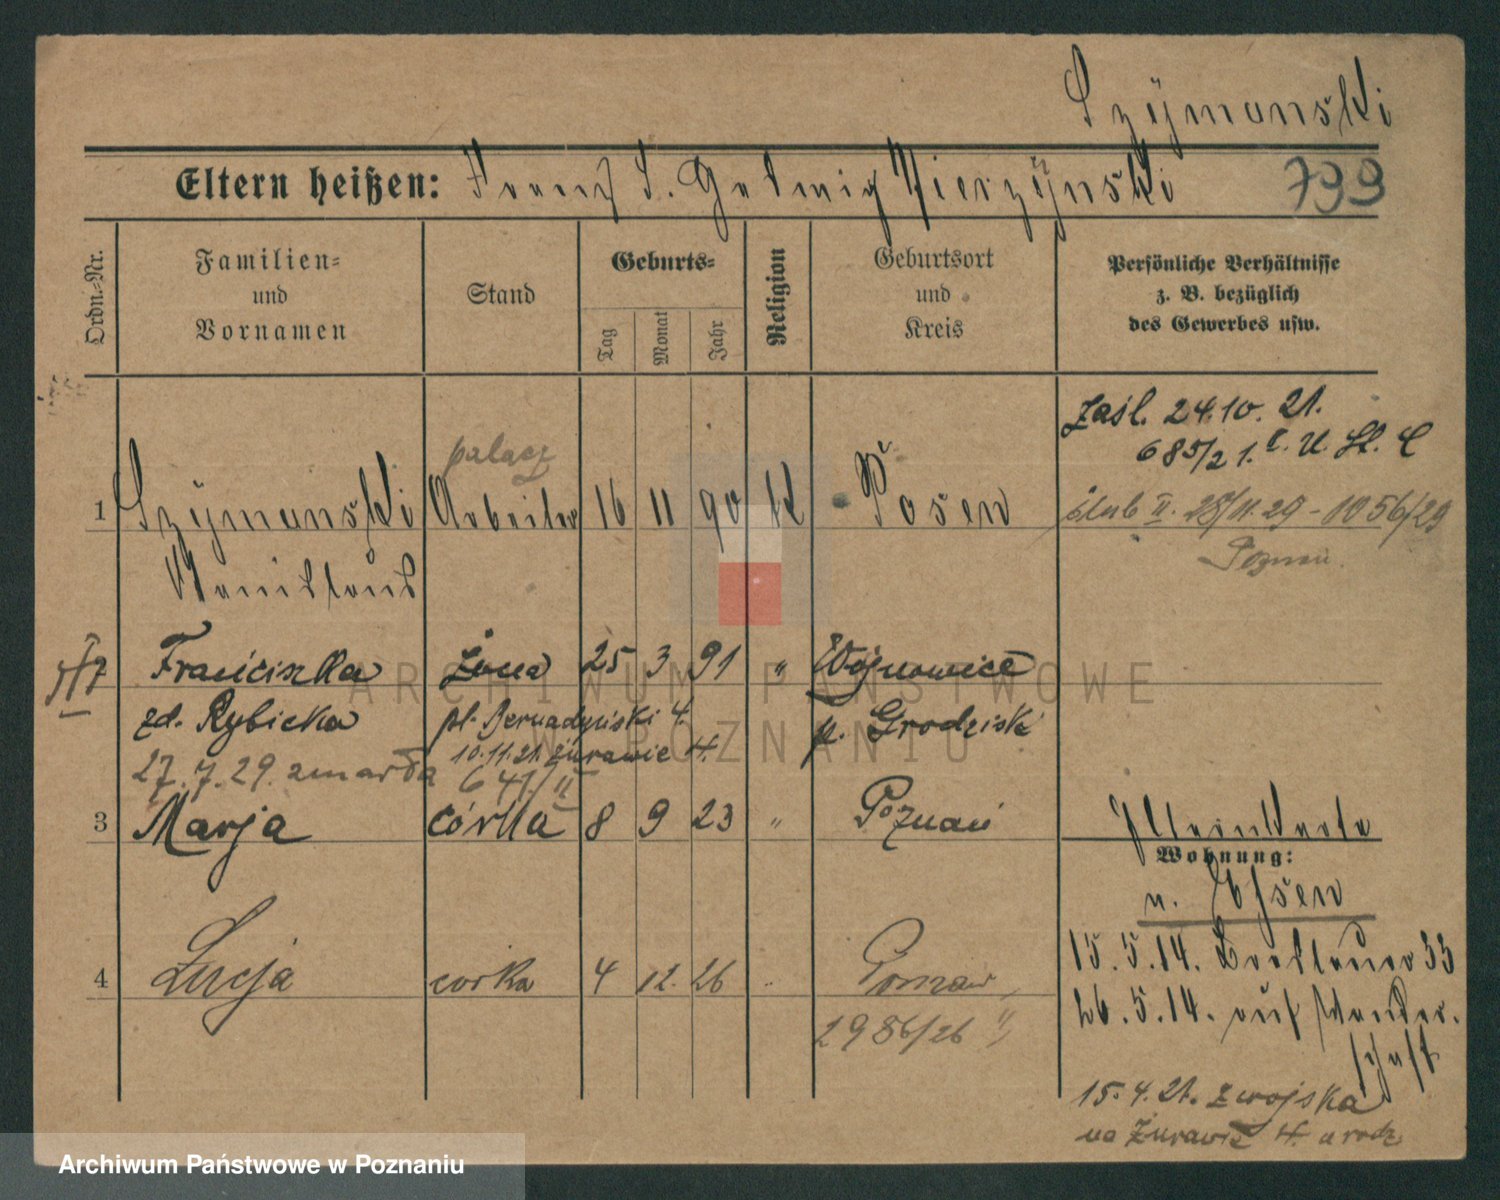 Szymanski
Eltern heißen: Franz S. Hedwig Wierzynski 799
Ordn.-Nr.
Familien-
und
Vornamen
Stand
Geburts-
Tag
Monat
Jahr
Religion
Geburtsort
und
Kreis
Persönliche Verhältnisse
z. B. bezüglich
des Gewerbes usw.
zaśl. 24.10.21.
685/21. U. St.
palacz
1 Szymanski Arbeiter 16 11 90 K Posen
ślub II. 28/11.29 - 1056/29
Poznań.
Stanislaus
Franciszka żona 25 3 91 " Wojnowice
zd. Rybicka pl. Bernadyński 4. p. Grodzisk
10.11.21. Żurawie 4.
27.7.29. zmarła 641/II
3 Marja córka 8 9 23 " Poznań
Wohnung:
n. Essen
4 Lucja corka 4 12. 26 " Poznań
2986/26 II
15.5.14. Breslauer 33
26.5.14. auf Wander-
schaft
15.4.21. z wojska
na Żurawie 4. u rodz
ARCHIWUM PAŃSTWOWE
W POZNANIU
Archiwum Państwowe w Poznaniu